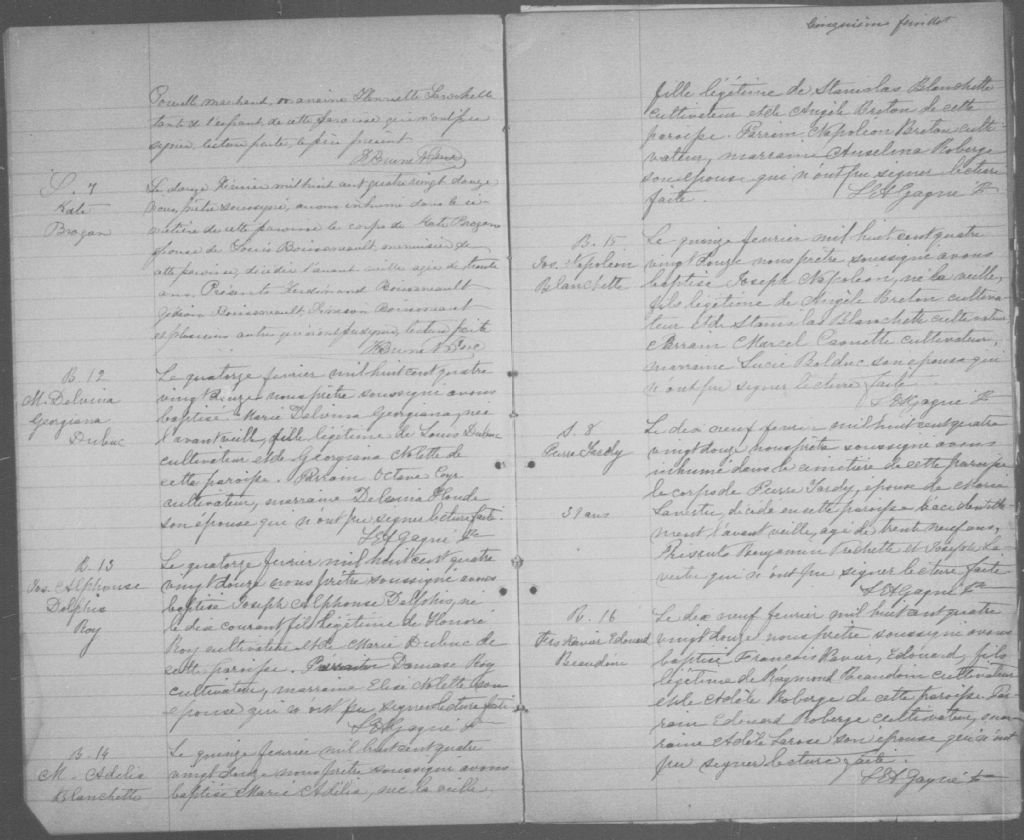 Pouette marchand, marraine Henriette Larochelle
tante de l'enfant, de cette paroisse qui n'ont pu
signer, lecture faite, le père présent
S. 7
Kate
Brogan
Le douze Février mil huit cent quatre vingt douze
nous, prêtre soussigné, avons inhumé dans le ci-
metière de cette paroisse le corps de Kate Brogan
épouse de Louis Boissonault, menuisier de
cette paroisse, décédée l'avant veille agée de trente
ans. Présents Ferdinand Boissoneault
Gédéon Boissoneault, Boissoneault
et plusieurs autres qui n'ont pu signer, lecture faite
B. 12
M. Delvina
Georgiana
Dubuc
Le quatorze février mil huit cent quatre
vingt douze nous prêtre soussigné avons
baptisé Marie Delvina Georgiana, née
l'avant veille, fille légitime de Louis Dubuc
cultivateur et de Georgiana Nolette de
cette paroisse. Parrain Octave Cyr
cultivateur, marraine Delvina Plonde
son épouse qui n'ont pu signer lecture faite.
L E A Gagné Ptre
B. 13
Jos. Alphonse
Delphis
Roy
Le quatorze février mil huit cent quatre
vingt douze nous prêtre soussigné avons
baptisé Joseph Alphonse Delphis, né
le dix courant fils légitime de Honoré
Roy cultivateur et de Marie Dubuc de
cette paroisse. Parrain Damase Roy
cultivateur, marraine Elise Nolette son
épouse qui n'ont pu signer lecture faite
L E A Gagné Ptre
B. 14
M. Adélia
Blanchette
Le quinze février mil huit cent quatre
vingt douze nous prêtre soussigné avons
baptisé Marie Adélia, née la veille
Cinquième feuillet
fille légitime de Stanislas Blanchette
cultivateur et de Angèle Breton de cette
paroisse. Parrain Napoléon Breton culti-
vateur, marraine Anselina Roberge
son épouse qui n'ont pu signer lecture
faite.
L E A Gagné Ptre
B. 15
Jos. Napoléon
Blanchette
Le quinze février mil huit cent quatre
vingt douze nous prêtre soussigné avons
baptisé Joseph Napoléon, né la veille,
fils légitime de Angèle Breton cultiva-
teur et de Stanislas Blanchette cultivateur
Parrain Marcel Caouette cultivateur,
marraine Lucie Bolduc son épouse qui
n'ont pu signer lecture faite.
L E A Gagné Ptre
S. 8
Pierre Tardy
39 ans
Le dix neuf février mil huit cent quatre
vingt douze nous prêtre soussigné avons
inhumé dans le cimetière de cette paroisse
le corps de Pierre Tardy, époux de Marie
décédé en cette paroisse accidentelle-
ment l'avant veille, agé de trente neuf ans,
Présents Benjamin Fréchette et Joseph La-
qui n'ont pu signer lecture faite
L E A Gagné Ptre
B. 16
Frs Xavier Edouard
Beaudoin
Le dix neuf février mil huit cent quatre
vingt douze nous prêtre soussigné avons
baptisé François Xavier, Edouard, fils
légitime de Raymond Beaudoin cultivateur
et de Adèle Roberge de cette paroisse. Par-
rain Edouard Roberge cultivateur, mar-
raine Adèle Larose son épouse qui n'ont
pu signer lecture faite.
L E A Gagné Ptre